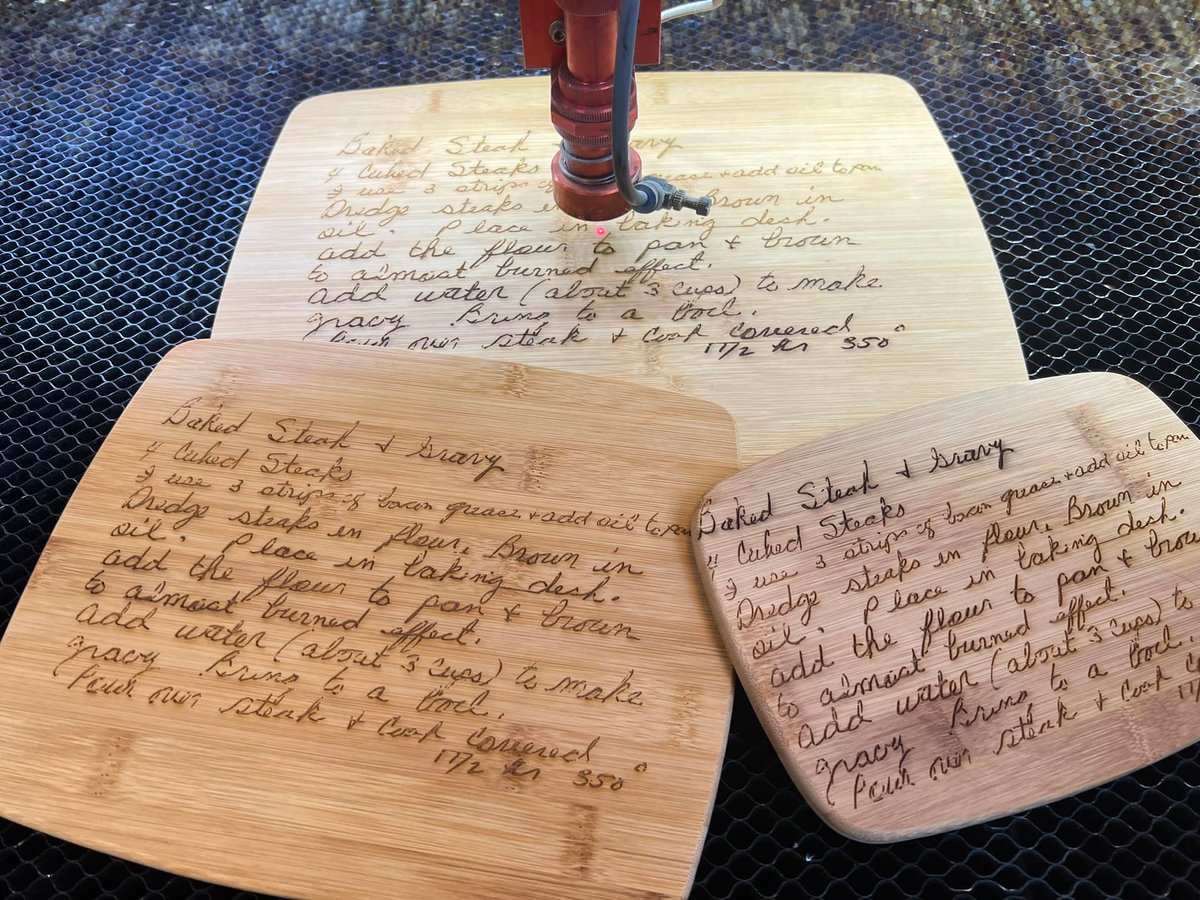 Baked Steak
4 Cubed Steaks
I use 3 strips of grease + add oil to pan
Dredge steaks Brown in
oil. Place in baking dish.
add the flour to pan + brown
to almost burned effect.
add water (about 3 cups) to make
gravy Bring to a boil.
Pour over steak + cook covered
1 1/2 hr 350°
Baked Steak + Gravy
4 Cubed Steaks
I use 3 strips of bacon grease + add oil to pan
Dredge steaks in flour, Brown in
oil. Place in baking dish.
add the flour to pan + brown
to almost burned effect.
add water (about 3 cups) to make
gravy Bring to a boil.
(Pour over steak + cook covered
1 1/2 hr 350°
Baked Steak + Gravy
4 Cubed Steaks
I use 3 strips of bacon grease + add oil to pan
Dredge steaks in flour, Brown in
oil. Place in baking dish.
add the flour to pan + brow
to almost burned effect.
add water (about 3 cups) to
gravy Bring to a boil.
(Pour over steak + cook